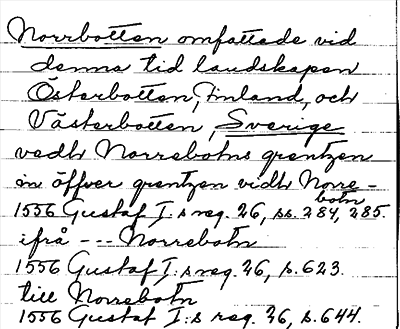 Norrbotten omfattade vid
denna tid landskapen
Österbotten, Finland, och
Västerbotten, Sverige
vedh Norrebotns grentzen
in öffver grentzen vidh Norre-
botn
1556 Gustaf I:s reg. 26, ss. 284, 285.
ifrå --- Norrebotn
1556 Gustaf I:s reg. 26, s. 623.
till Norrebotn
1556 Gustaf I:s reg. 26, s. 644.